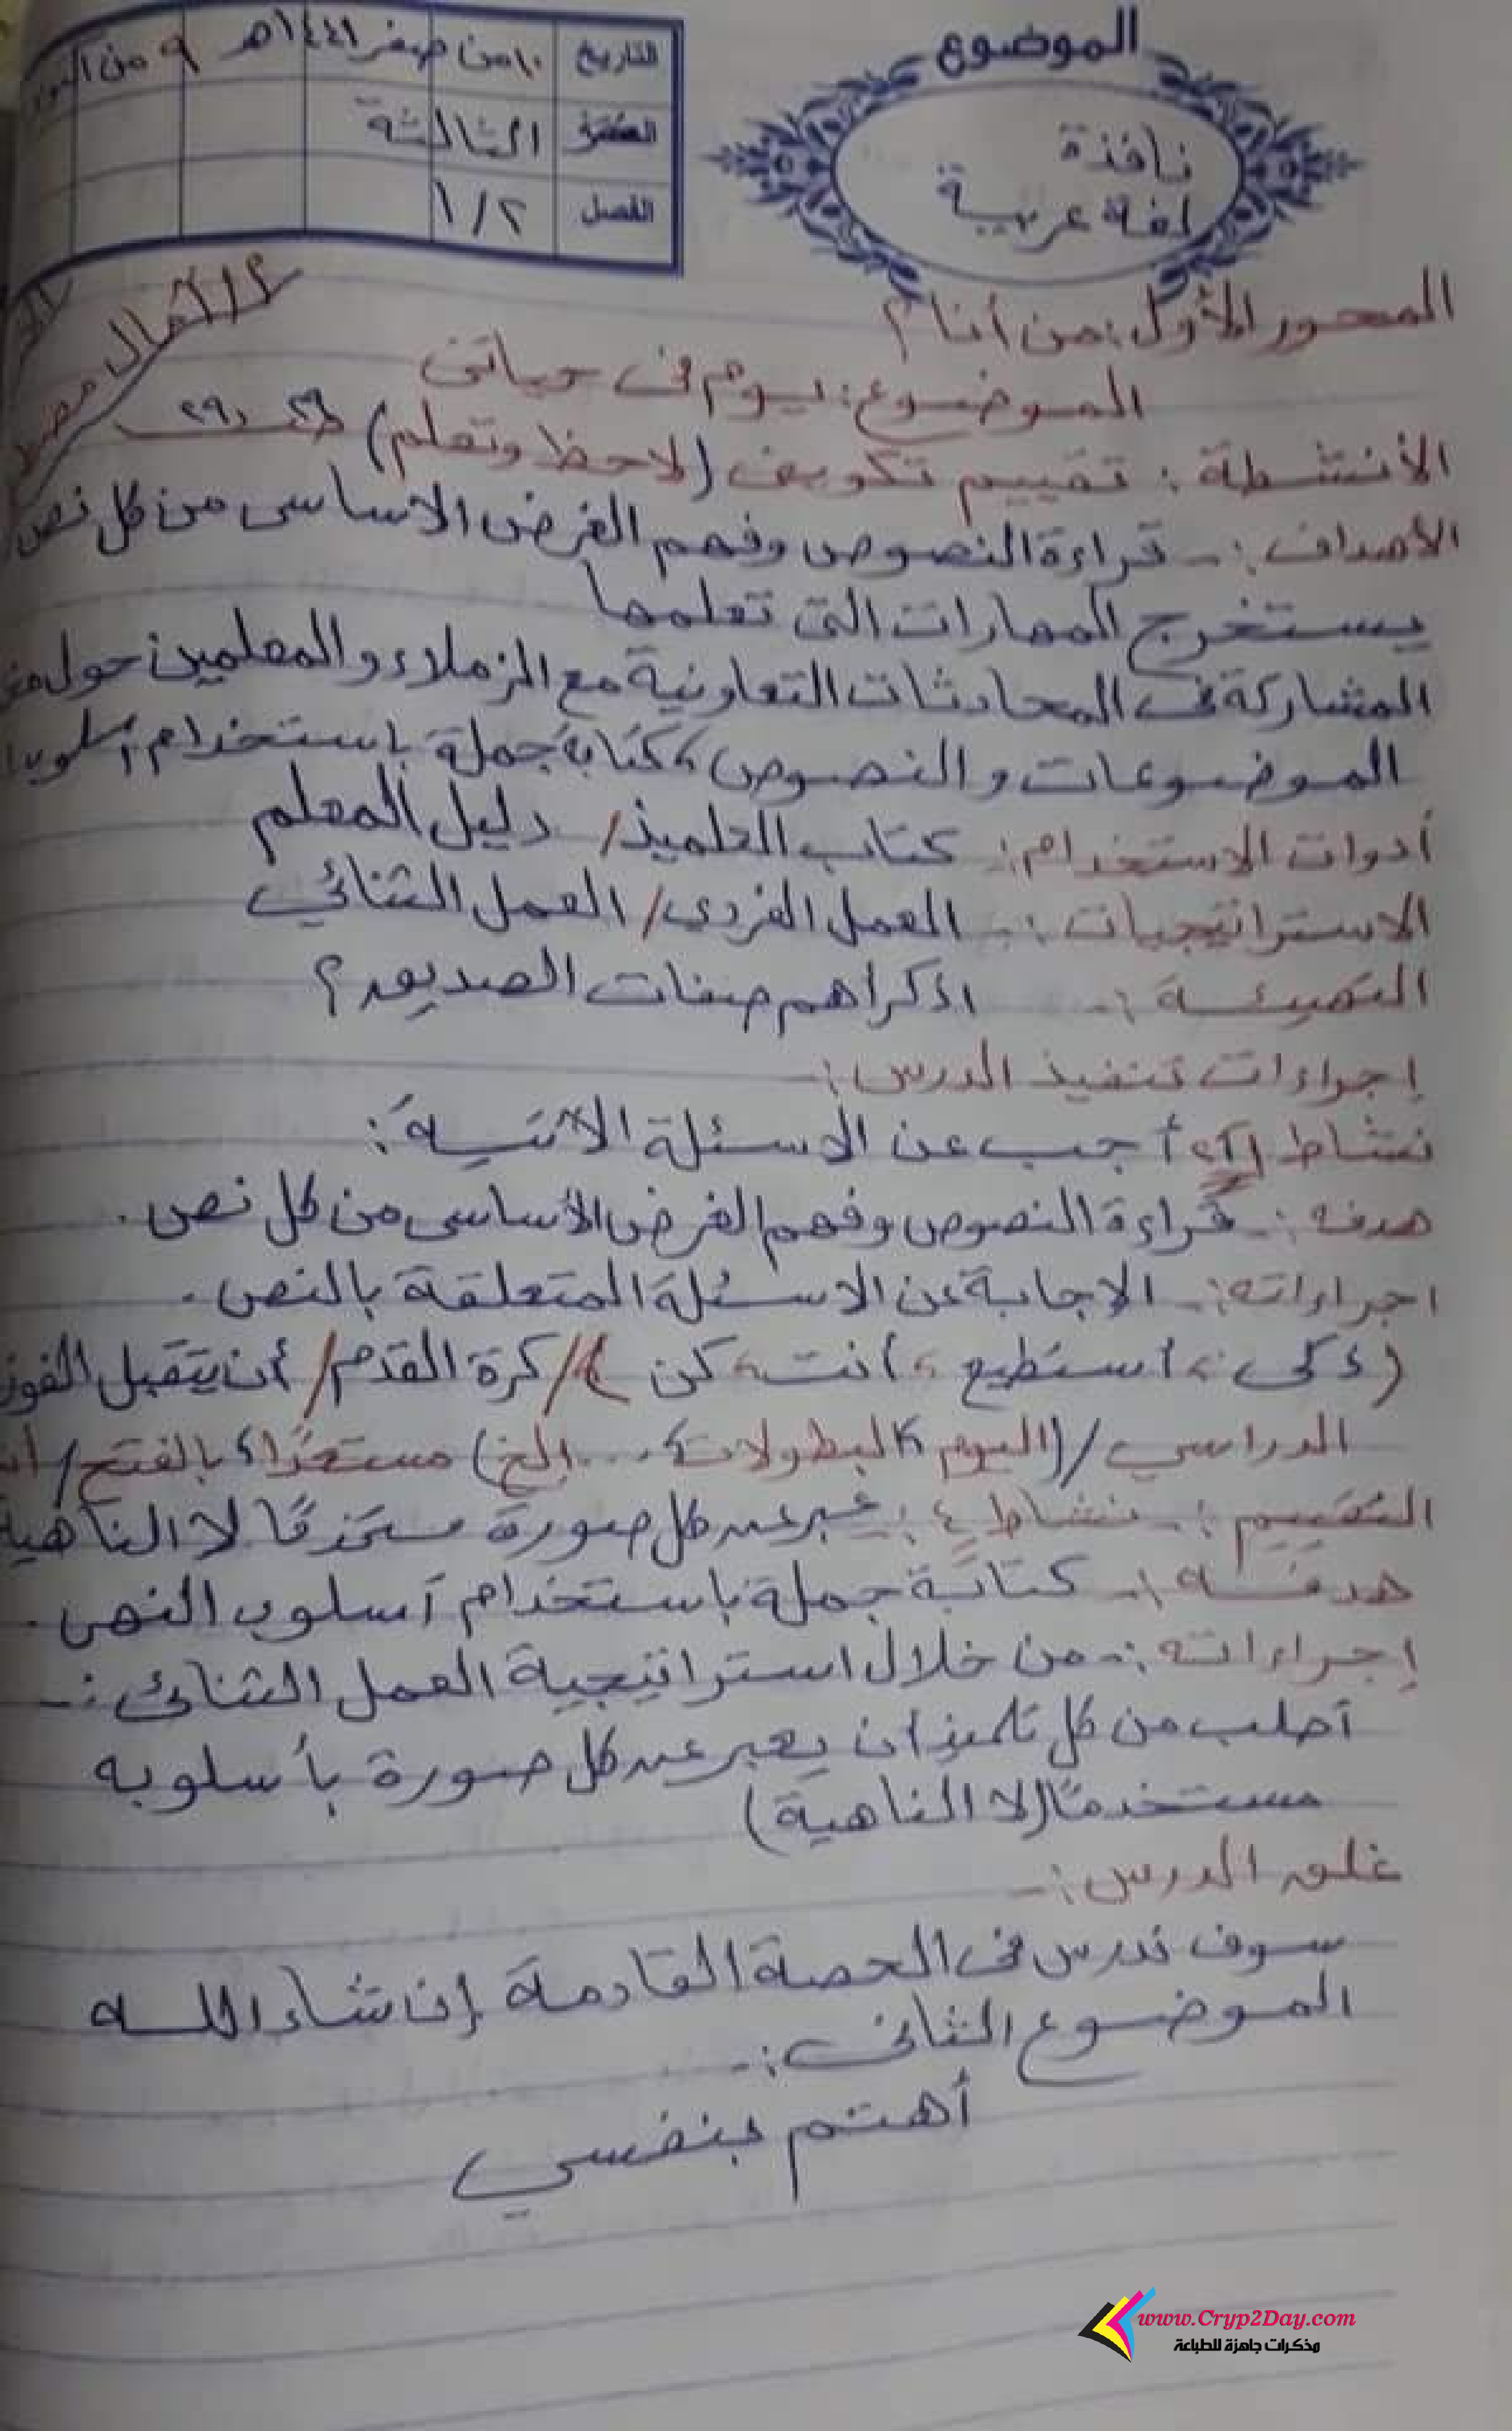 الموضوع
نافذة
لغة عربية
التاريخ ١٠ من صفر ١٤٤١هـ ٩ من
الحصة الثالثة
الفصل ١/٢
المحور الأول: من أنا؟
الموضوع: يوم فى حياتى
الأنشطة: تقييم تكوينى (لاحظ وتعلم)
الأهداف :- قراءة النصوص وفهم الغرض الاساسى من كل نص
يستخرج المهارات التى تعلمها
المشاركة فى المحادثات التعاونية مع الزملاء والمعلمين حول
الموضوعات والنصوص، كتابة جملة باستخدام أسلوب
أدوات الاستخدام:- كتاب التلميذ/ دليل المعلم
الاستراتيجيات :- العمل الفردى/ العمل الثنائي
التهيئة :- اذكر اهم صفات الصديق؟
إجراءات تنفيذ الدرس :-
نشاط أجب عن الاسئلة الآتية:
هدفه :- قراءة النصوص وفهم الغرض الأساسى من كل نص.
اجراءاته:- الاجابة عن الاسئلة المتعلقة بالنص.
(ذكى ، أستطيع ، أنت ، كن )/ كرة القدم/ أن يتقبل الفوز
الدراسي /(اليوم، البطولات، ... إلخ) مستعدًا، بالفتح/
التقييم :- نشاط ٤ :- عبر عن كل صورة مستخدمًا لا الناهية
هدفه :- كتابة جملة باستخدام أسلوب النهى.
إجراءاته :- من خلال استراتيجية العمل الثنائى :-
أطلب من كل تلميذ ان يعبر عن كل صورة بأسلوبه
مستخدمًا (لا الناهية)
غلق الدرس :-
سوف ندرس فى الحصة القادمة إن شاء الله
الموضوع الثانى :-
أهتم بنفسي
www.Cryp2Day.com
مذكرات جاهزة للطباعة